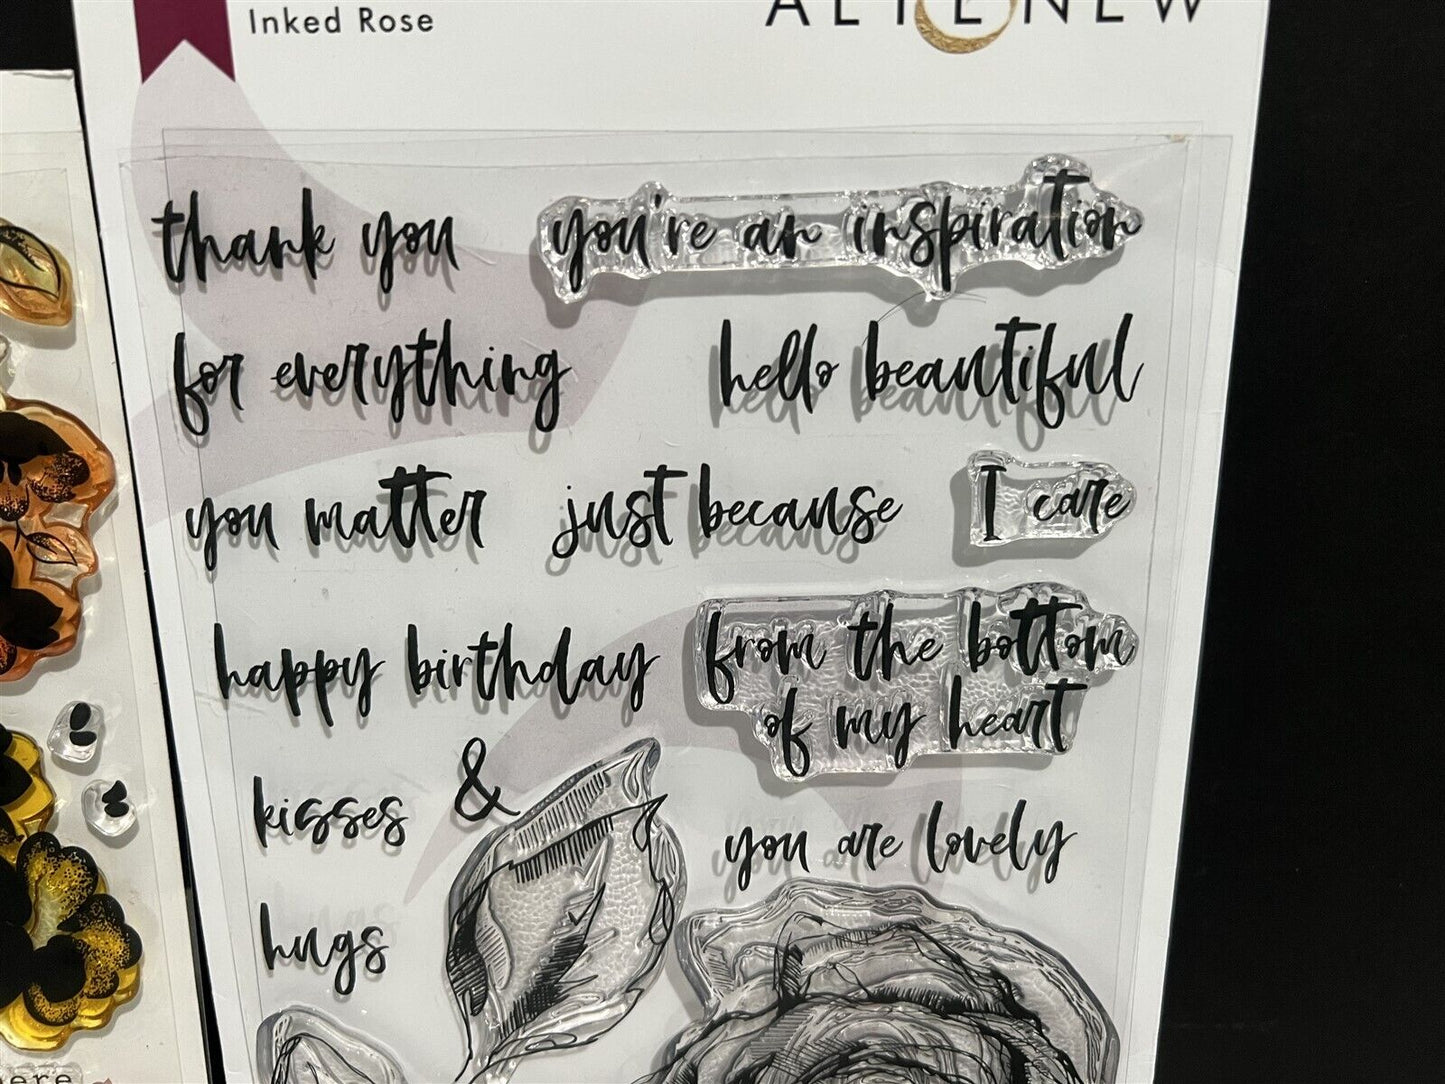 Inked Rose
ALTENEW
thank you
you're an inspiration
for everything
hello beautiful
you matter
just because
I care
happy birthday
from the bottom
of my heart
kisses
&
you are lovely
hugs
ere